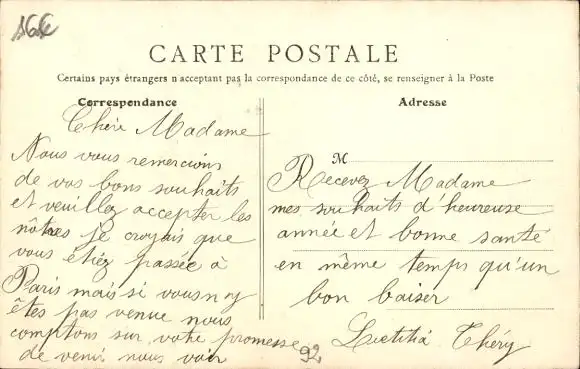 16€
CARTE POSTALE
Certains pays étrangers n'acceptant pas la correspondance de ce côté, se renseigner à la Poste
Correspondance
Chère Madame
Nous vous remercions
de vos bons souhaits
et veuillez accepter les
nôtres je croyais que
vous étiez passée à
Paris mais si vous n'y
êtes pas venue nous
comptons sur votre promesse
de venir nous voir
92
Adresse
M
Recevez Madame
mes souhaits d'heureuse
année et bonne santé
en même temps qu'un
bon baiser
Laetitia Théry